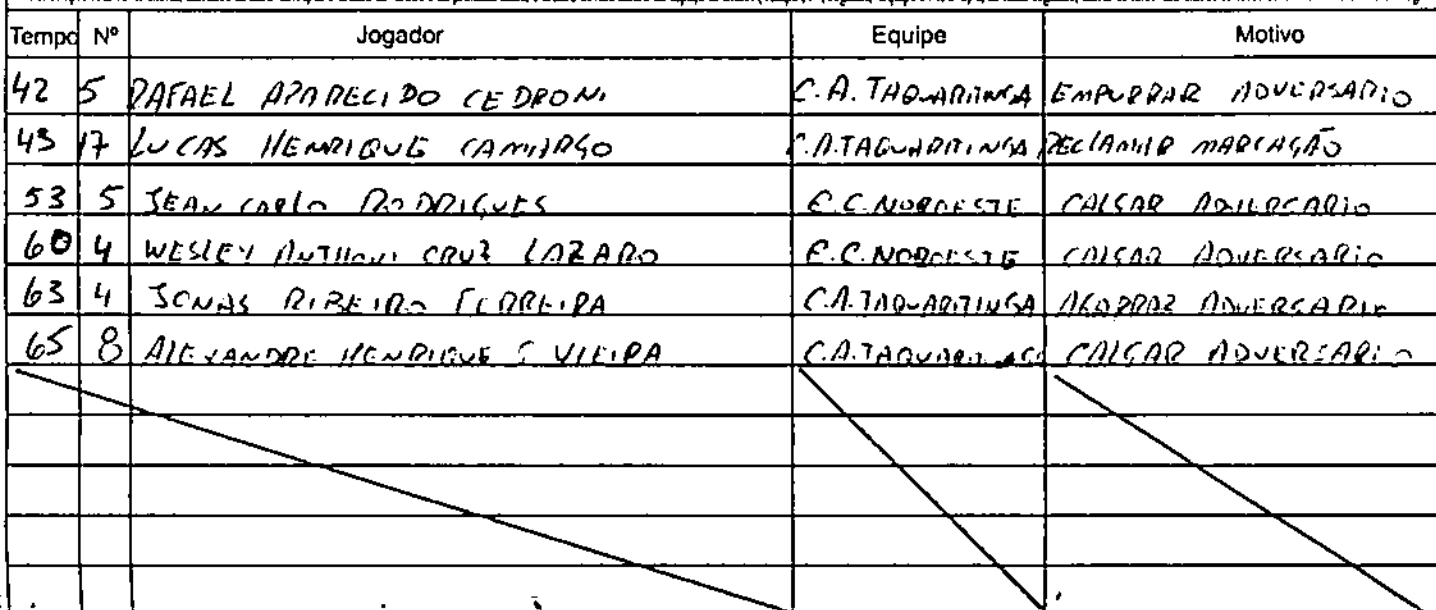 Tempo Nº Jogador Equipe Motivo
42 5 RAFAEL APARECIDO CEDRONI C.A. TAQUARITINGA EMPURRAR ADVERSARIO
43 17 LUCAS HENRIQUE CAMARGO C.A. TAQUARITINGA RECLAMAR MARCAÇÃO
53 5 JEAN CARLO RODRIGUES E.C. NOROESTE CALÇAR ADVERSARIO
60 4 WESLEY ANTHONI CRUZ LAZARO E.C. NOROESTE CALÇAR ADVERSARIO
63 4 JONAS RIBEIRO FERREIRA C.A. TAQUARITINGA AGARRAR ADVERSARIO
65 8 ALEXANDRE HENRIQUE S VIEIRA C.A. TAQUARITINGA CALÇAR ADVERSARIO